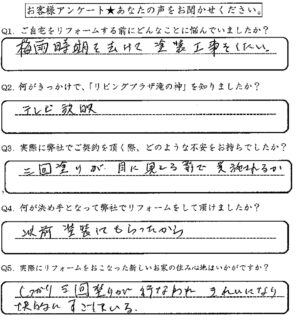 お客様アンケート★あなたの声をお聞かせください。
Q1. ご自宅をリフォームする前にどんなことに悩んでいましたか?
梅雨時期を去けて 塗装工事をしたい。
Q2. 何がきっかけで、「リビングプラザ滝の神」を知りましたか?
テレビ放映
Q3. 実際に弊社でご契約を頂く際、どのような不安をお持ちでしたか?
三回塗りが 目に見える前で 実施されるか
Q4. 何が決め手となって弊社でリフォームをして頂けましたか?
以前 塗装してもらったから
Q5. 実際にリフォームをおこなった新しいお家の住み心地はいかがですか?
しっかり三回塗りが 行なわれ きれいになり
すごしている。